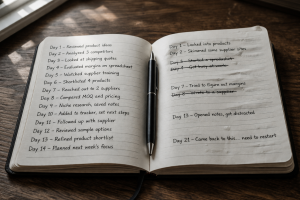 Day 1 – Reviewed product ideas
Day 2 – Analyzed 3 competitors
Day 3 – Looked at shipping quotes
Day 4 – Evaluated margins on spreadsheet
Day 5 – Watched supplier training
Day 6 – Shortlisted 4 products
Day 7 – Reached out to 2 suppliers
Day 8 – Compared MOQ and pricing
Day 9 – Niche research, saved notes
Day 10 – Added to tracker, set next steps
Day 11 – Followed up with supplier
Day 12 – Reviewed sample options
Day 13 – Refined product shortlist
Day 14 – Planned next week's focus
Day 1 – Looked into products
Day 2 – Skimmed some supplier sites
Day 3 – Started a spreadsheet
Day
Day 8 – Tried to figure out margins
Day
Day 13 – Opened notes, got distracted
Day 21 – Came back to this... need to restart